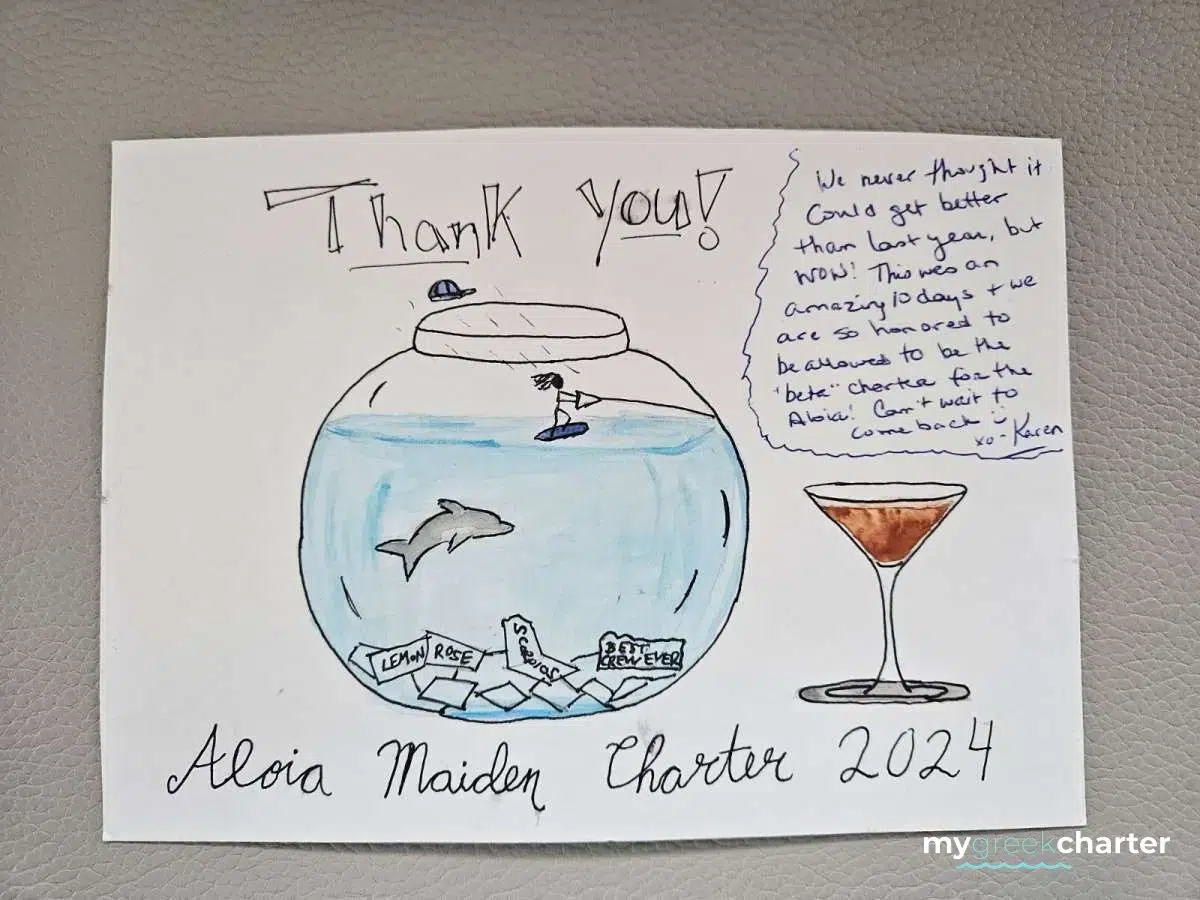 Thank you!
We never thought it
could get better
than last year, but
WOW! This was an
amazing 10 days + we
are so honored to
be allowed to be the
"beta" charter for the
Aloia! Can't wait to
come back
xo - Karen
LEMON ROSE
SCORPIOS
BEST
CREW EVER
Aloia Maiden Charter 2024
mygreekcharter